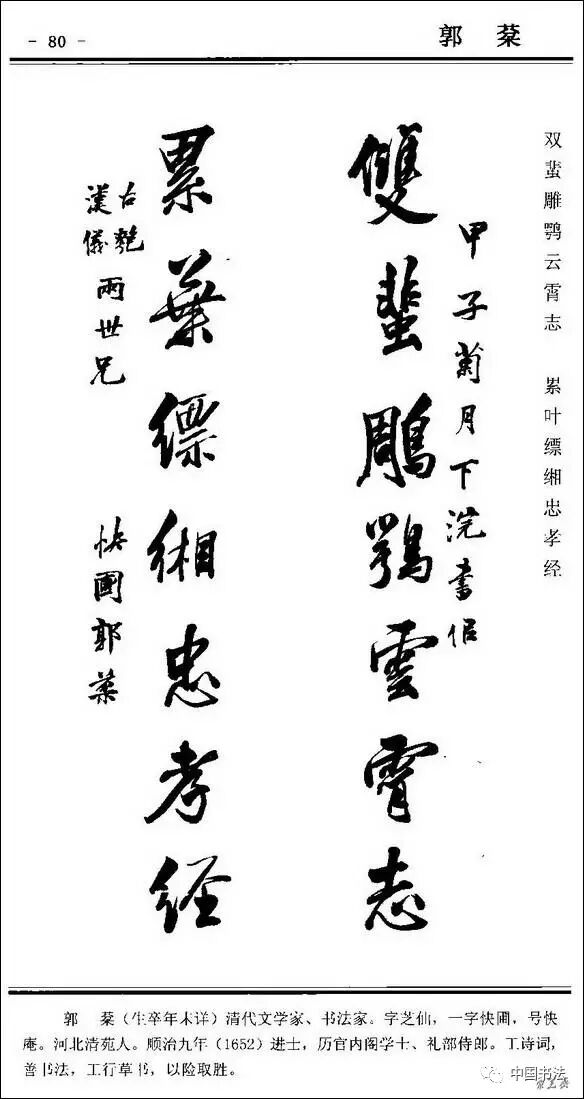 - 80 -
郭 棻
双蜚雕鹗云霄志 累叶缥缃忠孝经
甲子菊月下浣書
雙蜚鵰鶚雲霄志
累葉縹緗忠孝經
古
漢儀
兩世兄
快圃郭棻
郭 棻（生卒年未详）清代文学家、书法家。字芝仙，一字快圃，号快
庵。河北清苑人。顺治九年（1652）进士，历官内阁学士、礼部侍郎。工诗词，
善书法，工行草书，以险取胜。
中国书法